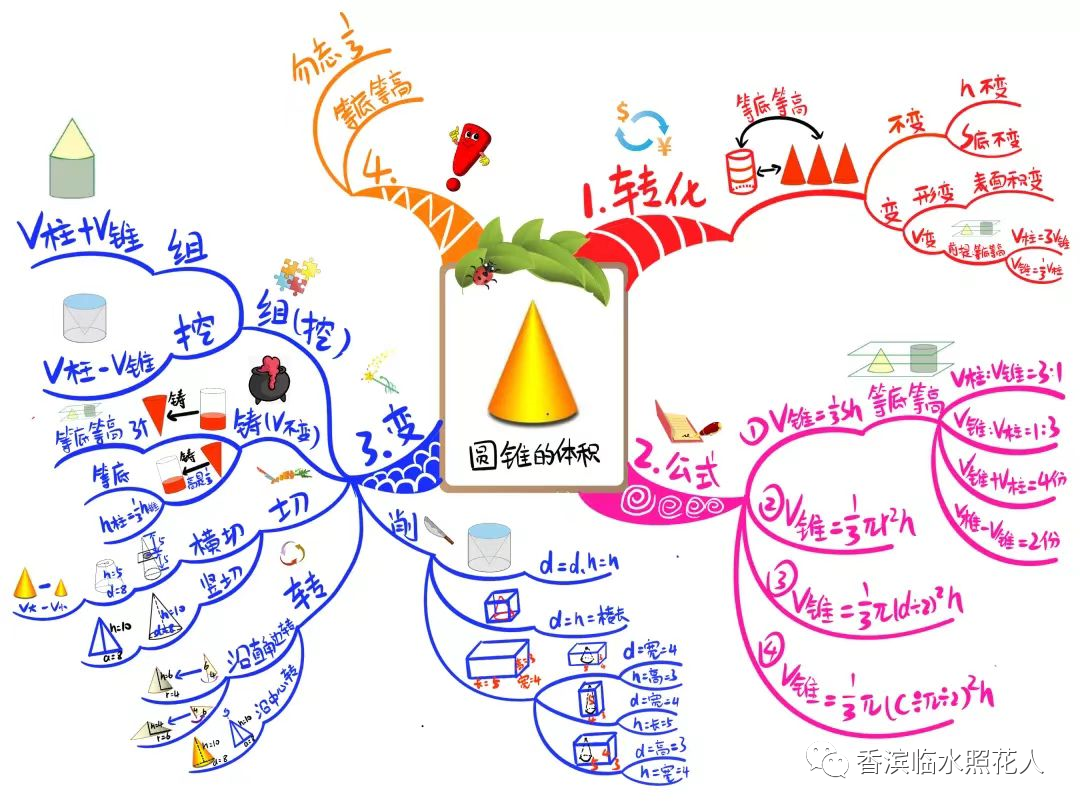 圆锥的体积
1.转化
等底等高
不变
h不变
S底不变
变
形变
表面积变
V变
前提:等底等高
V柱=3V锥
V锥=⅓V柱
2.公式
①V锥=⅓Sh
等底等高
V柱:V锥=3:1
V锥:V柱=1:3
V锥+V柱=4份
V锥=2份
②V锥=⅓πr²h
③V锥=⅓π(d÷2)²h
④V锥=⅓π(C÷π÷2)²h
3.变
组(挖)
组
V柱+V锥
挖
V柱-V锥
铸(V不变)
铸
等底等高 3个
铸
等底
h柱=⅓h锥
切
横切
h=5
d=8
5
5
V大-V小
竖切
h=10
d=8
h=10
a=8
转
沿直角边转
6
4
h=6
r=4
h=4
r=6
沿中心转
h=10
a=8
h=10
d=8
削
d=d、h=h
d=h=棱长
长=5
宽=4
高=3
d=宽=4
h=高=3
d=宽=4
h=长=5
d=高=3
h=宽=4
4.
勿忘⅓
等底等高
香滨临水照花人